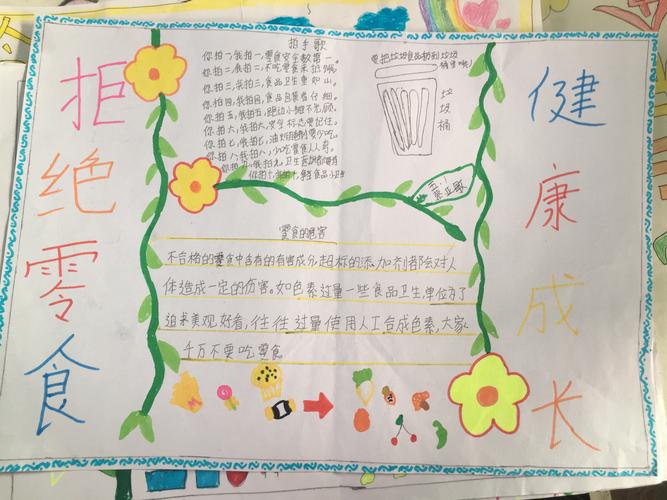 拒绝零食
健康成长
拍手歌
你拍一,我拍一,零食安全数第一。
你拍二,我拍二,不吃零食
你拍三,我拍三,食品卫生重如山。
你拍四,我拍四,食品包装看仔细。
你拍五,我拍五,跑动小摊不光顾。
你拍六,我拍六,安全标志要记住。
你拍七,我拍七,油炸 零少吃。
你拍八,我拍八,小吃零食人人夸。
你拍九,我拍九,卫生
你拍十,我拍十, 食品
要把垃圾食品扔到垃圾
桶里哦!
垃圾桶
零食的危害
不合格的零食中含有的有害成分,超标的添加剂都会对人
体造成一定的伤害。如色素过量一些食品卫生,单位为了
追求美观,好看,往往过量使用人工合成色素,大家
千万不要吃零食